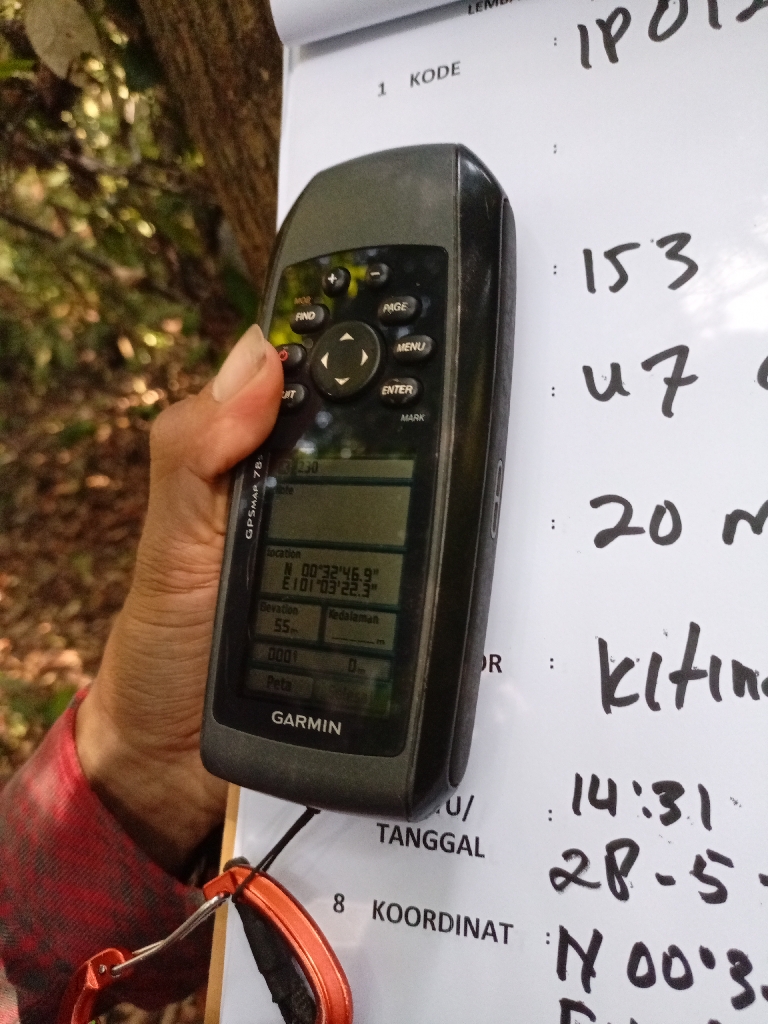 1 KODE : IP012
:
: 153
: U7
: 20 m
: Kitin
: 14:31
TANGGAL 28-5-
8 KOORDINAT : N 00°3
+ -
MOB
FIND PAGE
MENU
ENTER
MARK
GPSMAP 78s
230
Location
N 00°32'46.9"
E101°03'22.3"
Elevation Kedalaman
55m ____m
0001 0m
Peta
GARMIN